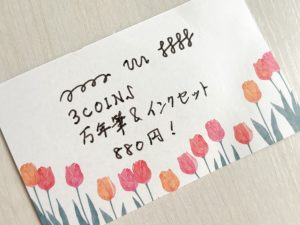 3COINS
万年筆&インクセット
880円!